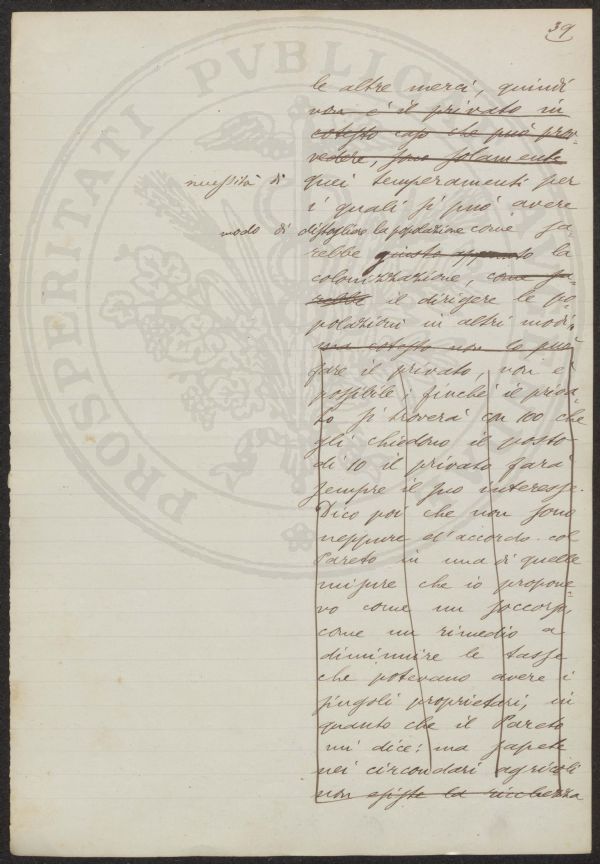 39
le altre merci, quindi
non è il privato in
cotesto caso che può prov-
vedere, sono solamente
necessità di quei temperamenti per
i quali si può avere
modo di distogliere la popolazione come sa-
rebbe giusto appunto la
colonizzazione, come sa-
rebbe il dirigere le po-
polazioni in altri modi.
ma cotesto non lo può
fare il privato, non è
possibile; finché il priva-
to si troverà con 100 che
gli chiedono il posto
di 10 il privato farà
sempre il suo interesse.
Dico poi che non sono
neppure d'accordo col
Pareto in una di quelle
misure che io propone-
vo come un soccorso,
come un rimedio a
diminuire le tasse
che potevano avere i
singoli proprietari, in
quanto che il Pareto
mi dice: ma sapete
nei circondari agricoli
non esiste la ricchezza
PROSPERITATI PVBLICAE